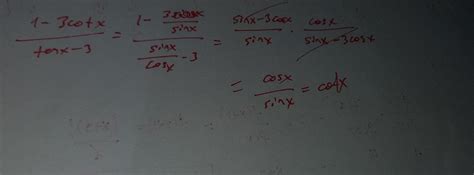 (1 - 3cotx)/(tanx - 3) = (1 - 3cosx/sinx)/(sinx/cosx - 3) = (sinx - 3cosx)/sinx · cosx/(sinx - 3cosx)
= cosx/sinx = cotx